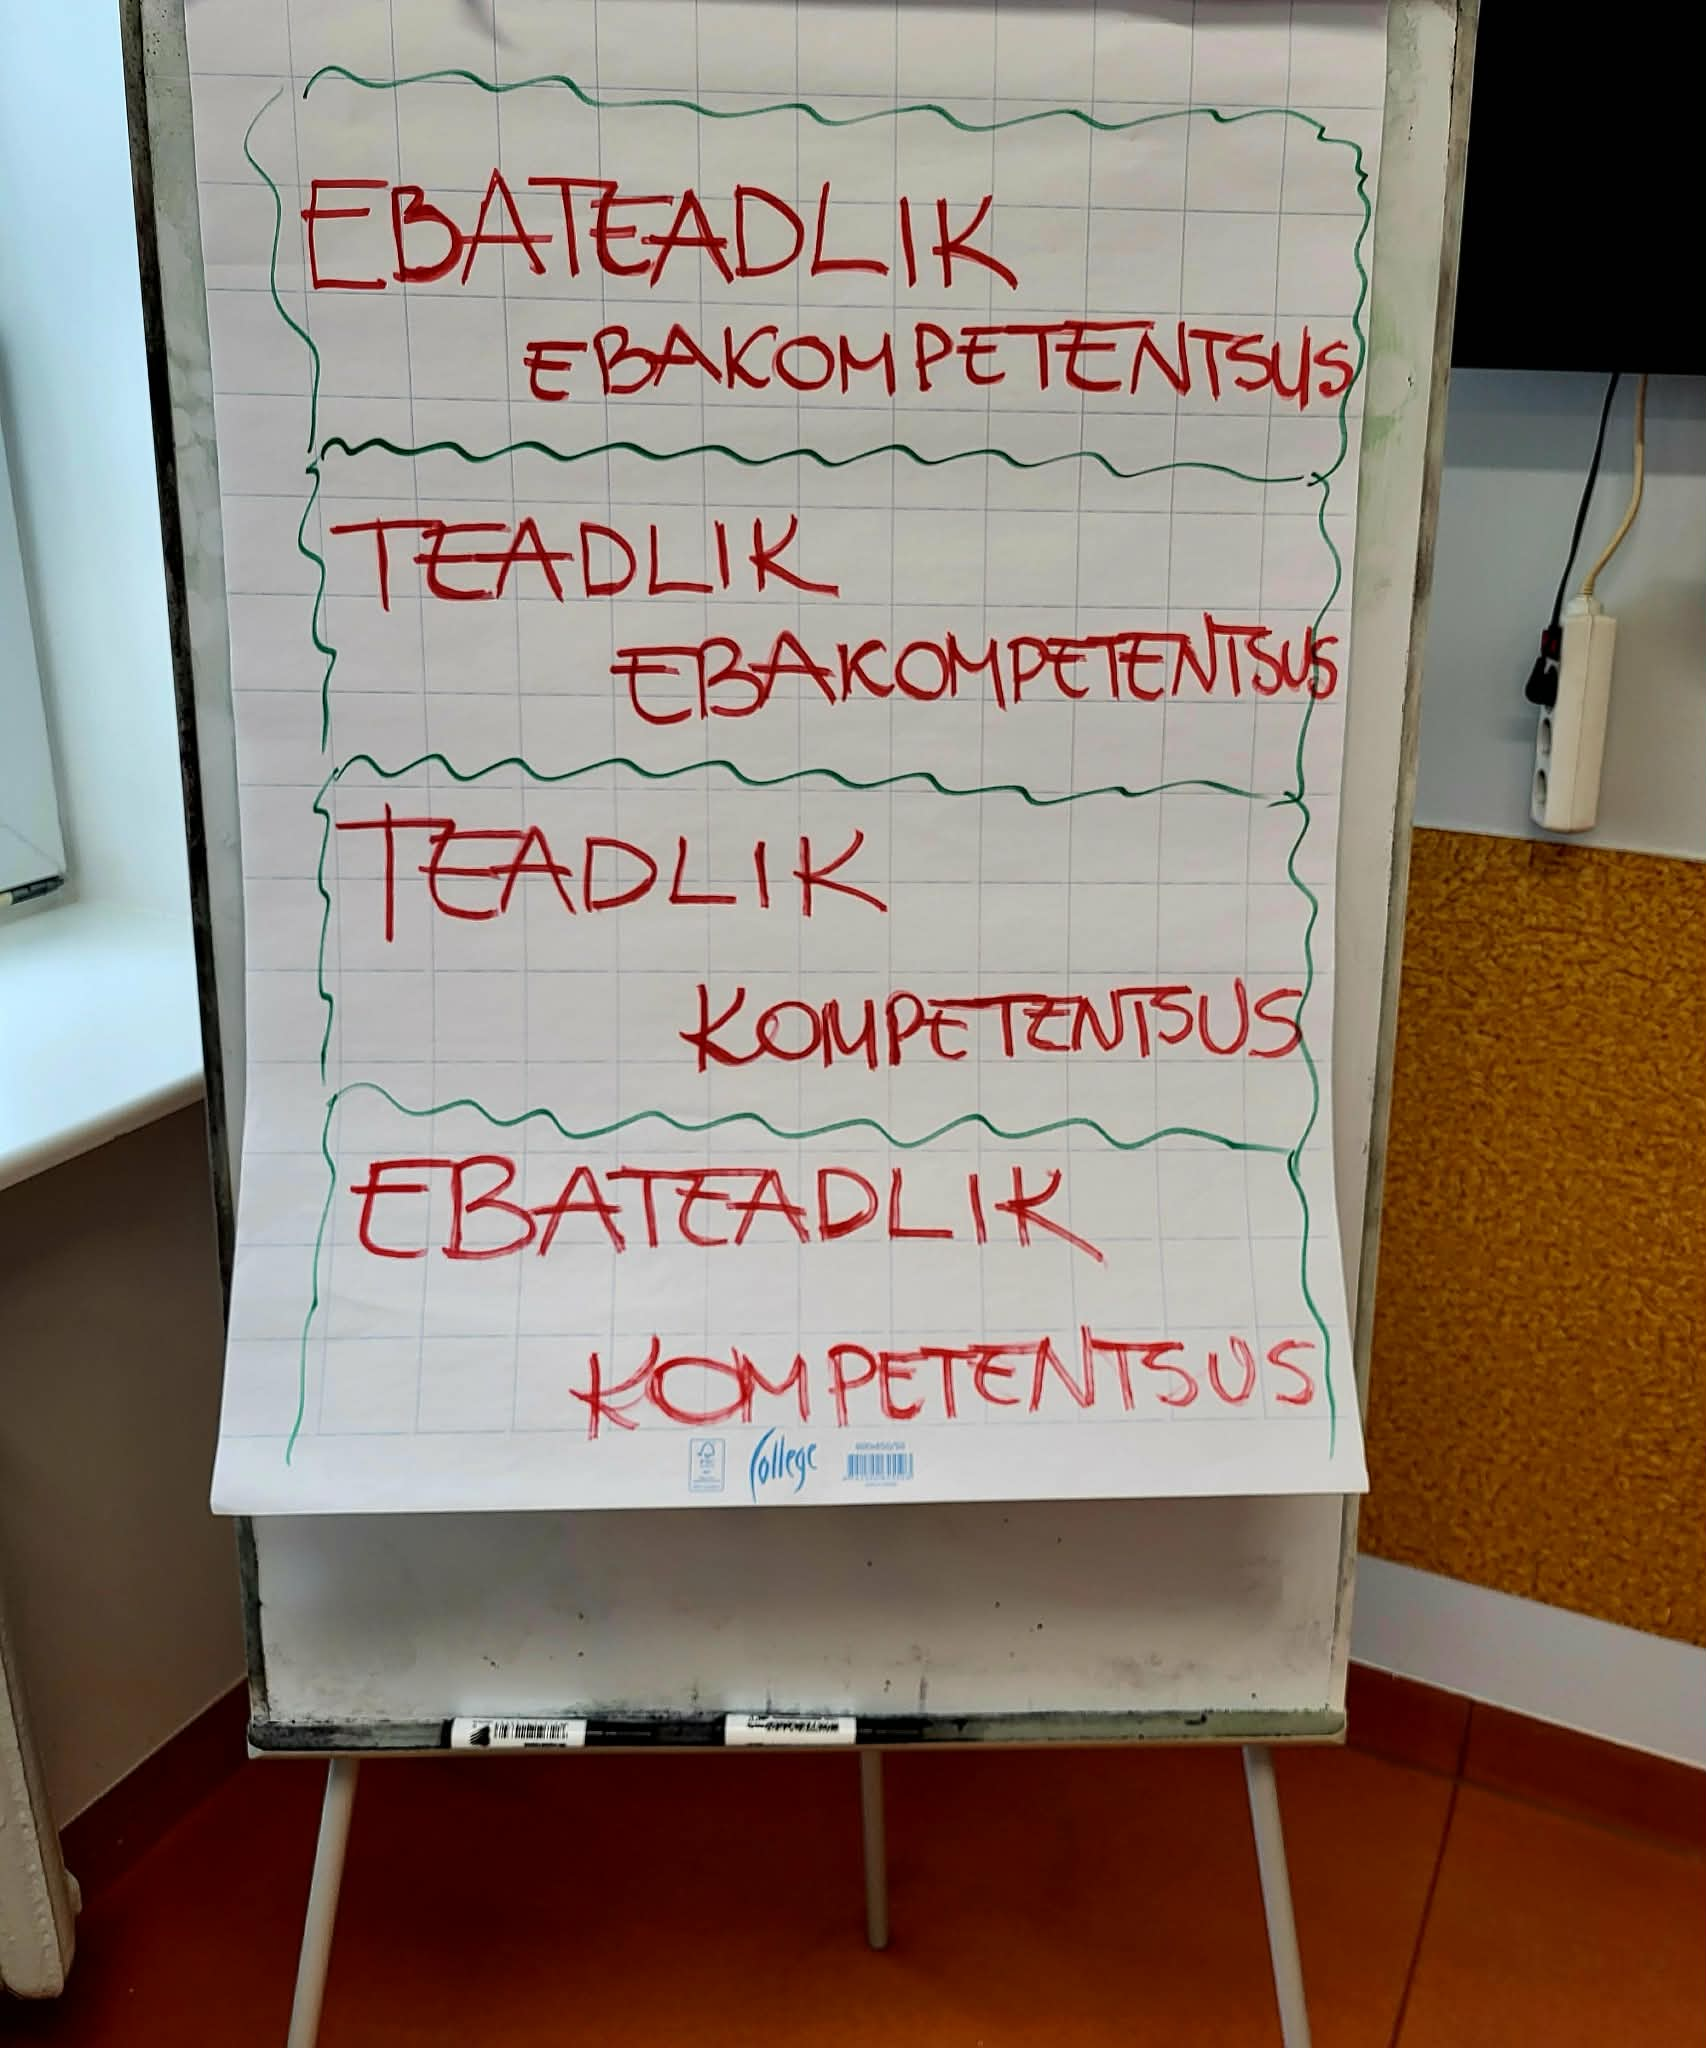 EBATEADLIK
EBAKOMPETENTSUS
TEADLIK
EBAKOMPETENTSUS
TEADLIK
KOMPETENTSUS
EBATEADLIK
KOMPETENTSUS
College